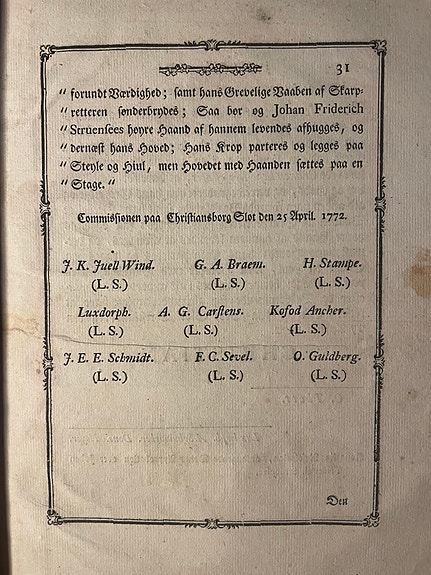 31
" forundt Værdighed; samt hans Grevelige Vaaben af Skarp-
" retteren sønderbrydes; Saa bør og Johan Friderich
" Struensees høyre Haand af hannem levendes afhugges, og
" dernæst hans Hoved; Hans Krop parteres og legges paa
" Steyle og Hiul, men Hovedet med Haanden sættes paa en
" Stage. "
Commissionen paa Christiansborg Slot den 25 April. 1772.
J. K. Juell Wind. G. A. Braem. H. Stampe.
(L. S.) (L. S.) (L. S.)
Luxdorph. A. G. Carstens. Kofod Ancher.
(L. S.) (L. S.) (L. S.)
J. E. E. Schmidt. F. C. Sevel. O. Guldberg.
(L. S.) (L. S.) (L. S.)
Den